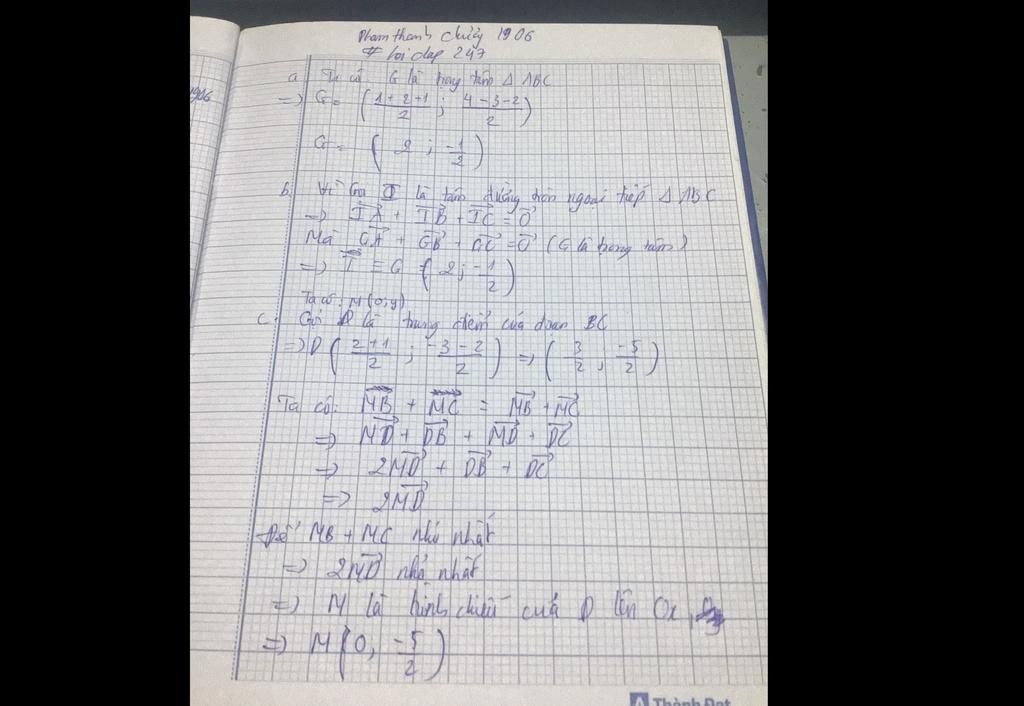 Phamthanh chủy 1906
# hoi dap 247
a Ta có G là trọng tâm Δ ABC
=> G = ( 1+2+1 / 2 ; 4-3-2 / 2 )
G = ( 2 ; -1/2 )
b. Vì Gọi I là tâm đường tròn ngoại tiếp Δ ABC
=> IA + IB + IC = 0
Mà GA + GB + GC = 0 (G là trọng tâm)
=> I ≡ G ( 2 ; -1/2 )
Ta có: M(0,y)
c. Gọi D là trung điểm của đoạn BC
=> D ( 2+1 / 2 ; -3-2 / 2 ) => ( 3/2 ; -5/2 )
Ta có: MB + MC = MB + MC
=> MD + DB + MD + DC
=> 2MD + DB + DC
=> 2MD
Để MB + MC nhỏ nhất
=> 2MD nhỏ nhất
=> M là hình chiếu của D lên Ox,
=> M ( 0, -5/2 )
Thành Đạt